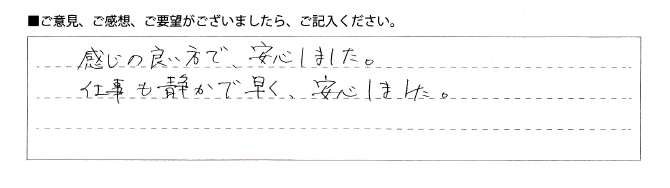 ■ご意見、ご感想、ご要望がございましたら、ご記入ください。
感じの良い方で、安心しました。
仕事も静かで早く、安心しました。